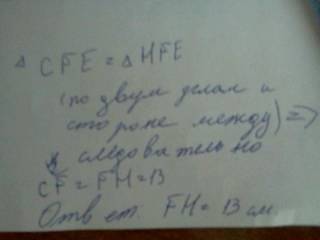 △ CFE = △ HFE
(по двум углам и
стороне между) =>
следовательно
CF = FH = 13
Ответ: FH = 13 см.